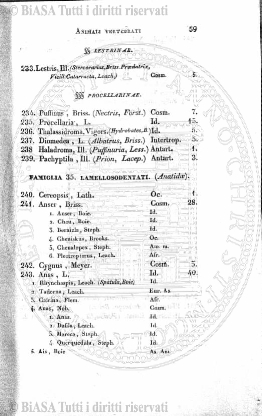 © BiASA Tutti i diritti riservati
ANIMALI VERTEBRATI 59
§§ LESTRINAE.
233. Lestris, Ill. (Stercorarius, Briss. Praedatrix,
Vieill. Catarracta, Leach.) Cosm. 5.
§§§ PROCELLARINAE.
234. Puffinus, Briss. (Nectris, Forst.) Cosm. 7.
235. Procellaria, L. Id. 15.
236. Thalassidroma, Vigors. (Hydrobates, B.) Id. 5.
237. Diomedea, L. (Albatrus, Briss.) Intertrop. 5.
238. Haladroma, Ill. (Puffinuria, Less.) Antart. 1.
239. Pachyptila, Ill. (Prion, Lacep.) Antart. 3.
FAMIGLIA 35. LAMELLOSODENTATI. (Anatidae).
240. Cereopsis, Lath. Oc. 1.
241. Anser, Briss. Cosm. 28.
1. Anser, Boie. Id.
2. Chen, Boie. Id.
3. Bernicla, Steph. Id.
4. Cheniskus, Brooks. Oc.
5. Chenalopex, Steph. Am. m.
6. Plectropterus, Leach. Afr.
242. Cygnus, Meyer. Cosm. 5.
243. Anas, L. Id. 40.
1. Rhynchaspis, Leach. (Spatula, Boie) Id.
2. Tadorna, Leach. Eur. As.
3. Cairina, Flem. Afr.
4. Anas, Nob. Cosm.
1. Anas. Id.
2. Dafila, Leach. Id.
3. Mareca, Steph. Id.
4. Querquedula, Steph. Id.
5. Aix, Boie As. Am.
© BiASA Tutti i diritti riservati